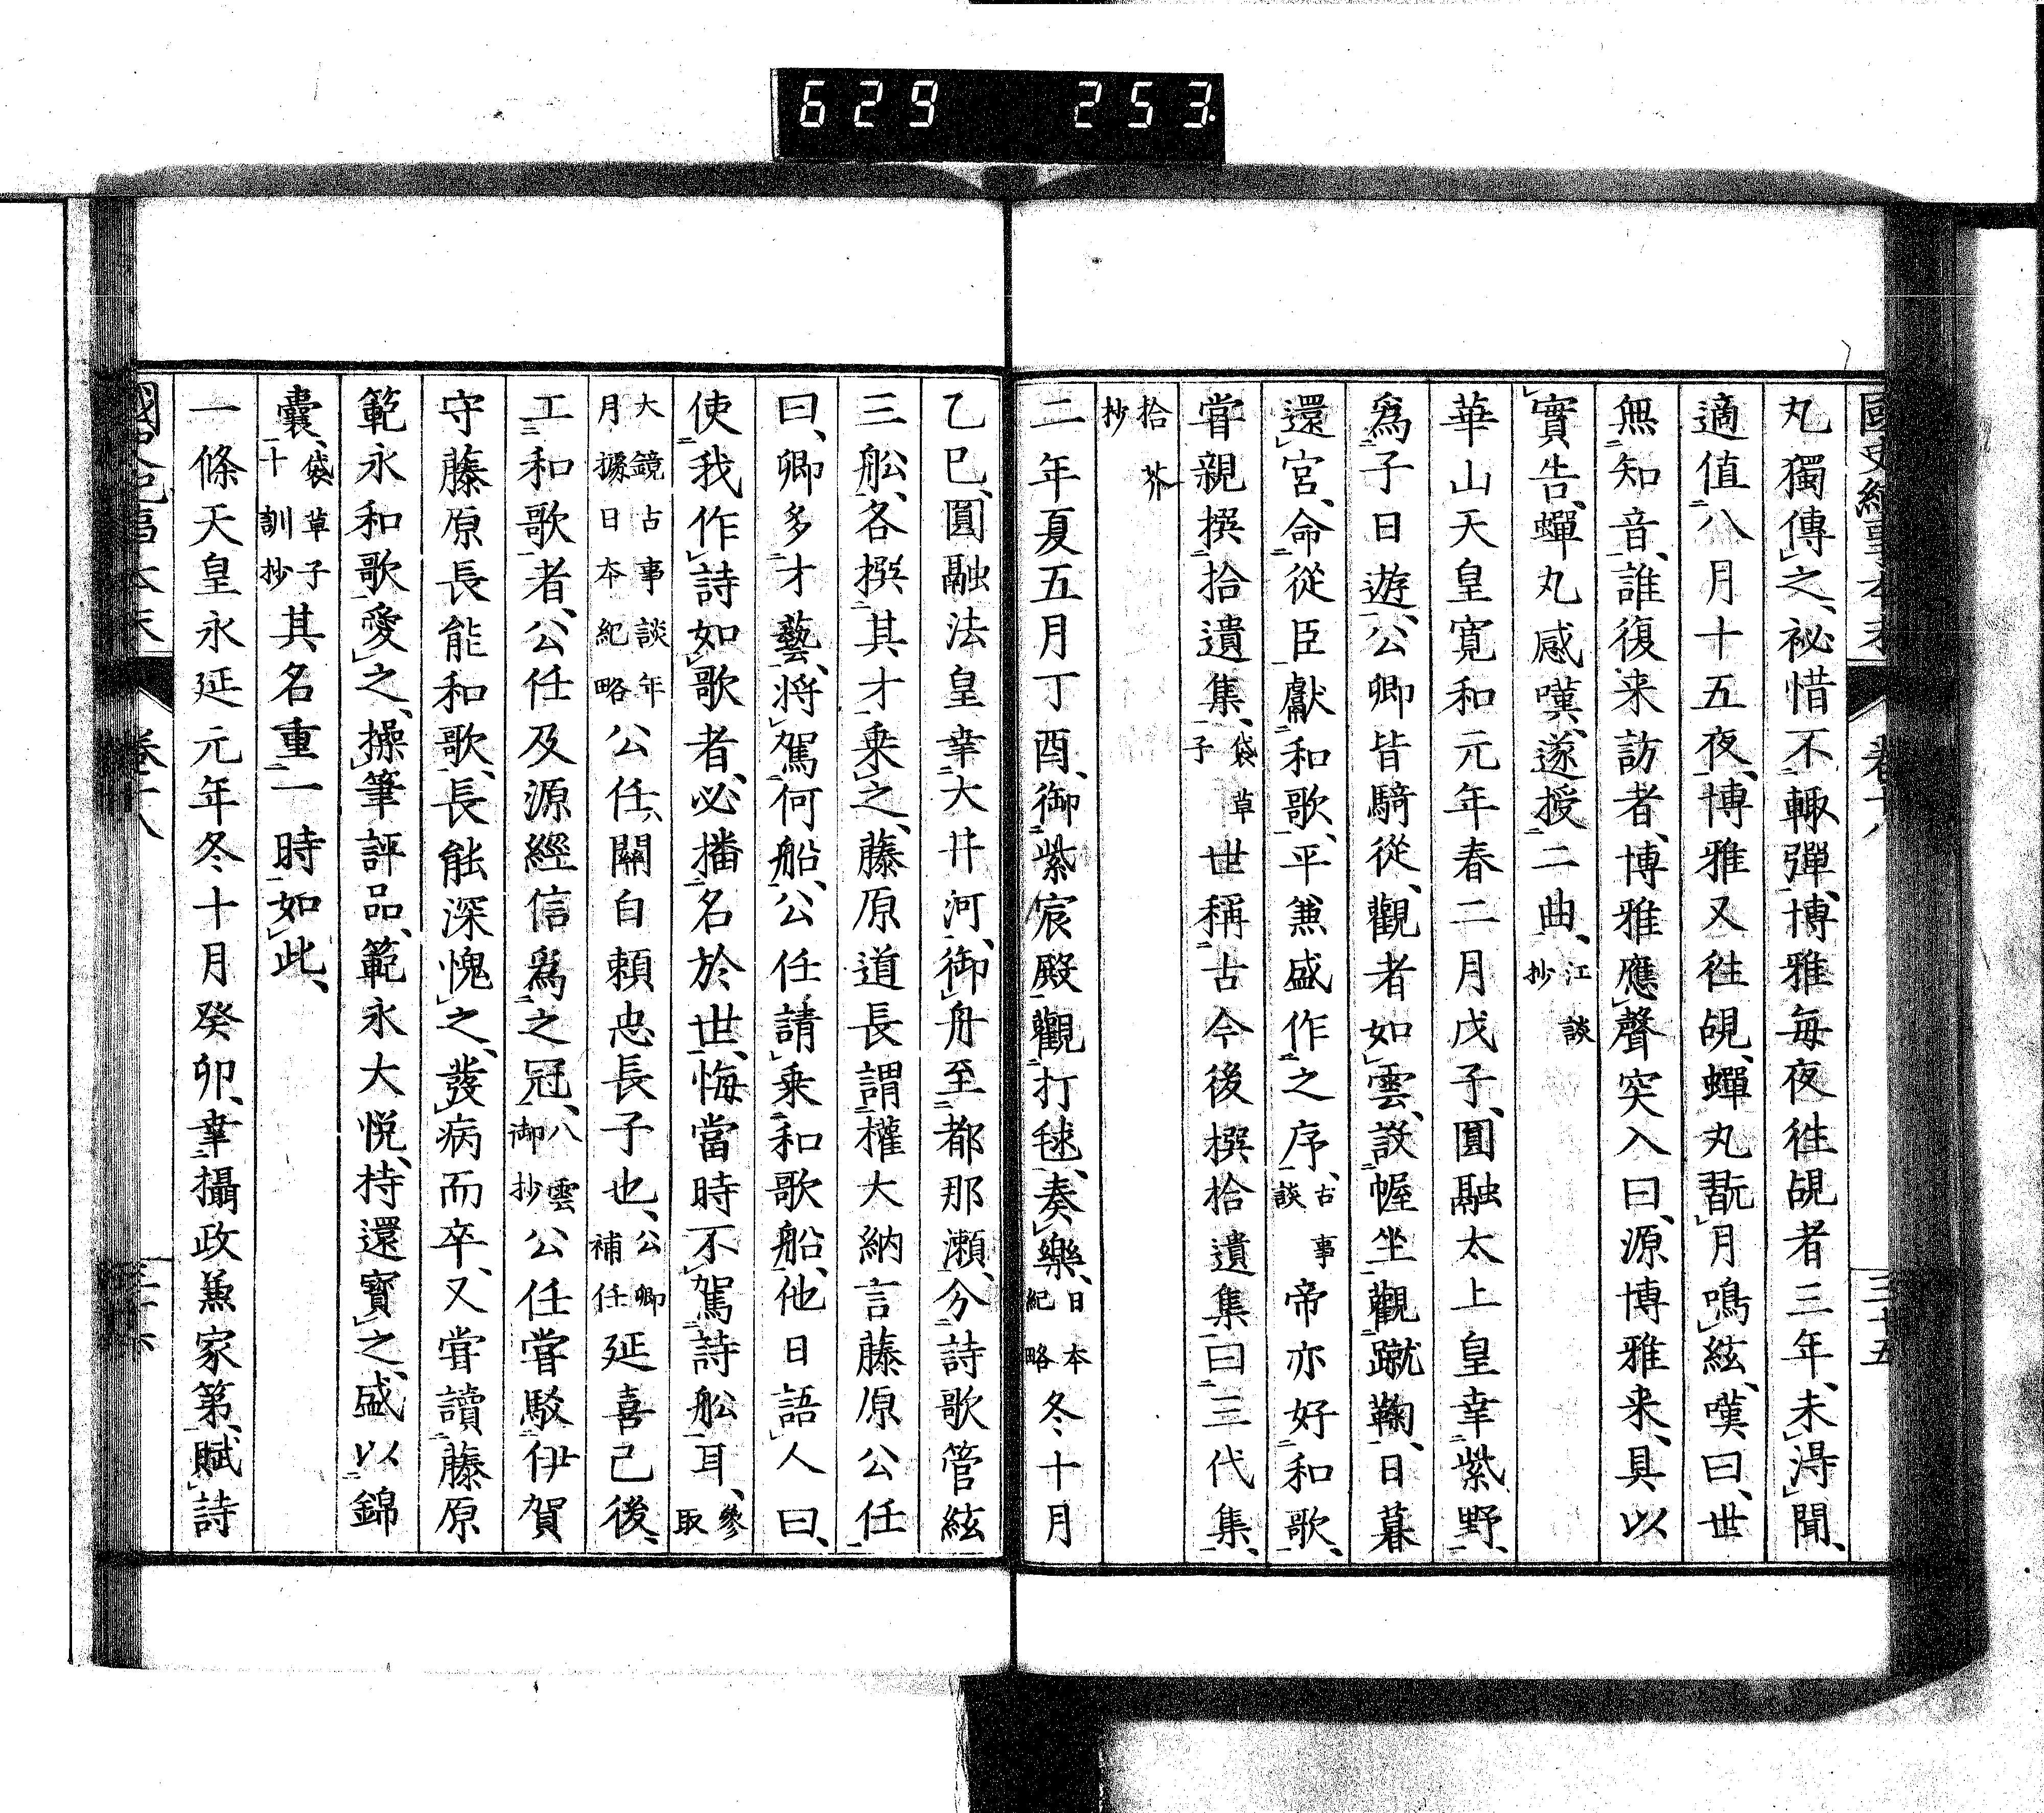 629 253
丸獨傳之、祕惜不輙彈、博雅每夜徃覘者三年、未淂聞、
適值八月十五夜、博雅又徃覘、蟬丸翫月鳴絃、嘆曰、世
無知音、誰復来訪者、博雅應聲突入曰、源博雅来、具以
實告、蟬丸感嘆、遂授二曲、江談抄
華山天皇寛和元年春二月戊子、圓融太上皇幸紫野、
爲子日遊、公卿皆騎從、觀者如雲、設幄坐觀蹴鞠、日暮
還宮、命從臣獻和歌、平兼盛作之序、古事談帝亦好和歌、
甞親撰拾遺集、袋草子世稱古今後撰拾遺集曰三代集、
拾芥抄
二年夏五月丁酉、御紫宸殿觀打毬、奏樂、日本紀略冬十月
乙巳、圓融法皇幸大井河、御舟至都那瀨、分詩歌管絃
三舩、各撰其才乗之、藤原道長謂權大納言藤原公任
曰、卿多才藝、将駕何船、公任請乗和歌船、他日語人曰、
使我作詩如歌者、必播名於世、悔當時不駕詩舩耳、參取
大鏡古事談年月據日本紀略公任、關白頼忠長子也、公卿補任延喜己後、
工和歌者、公任及源經信爲之冠、八雲御抄公任甞駁伊賀
守藤原長能和歌、長能深愧之、發病而卒、又甞讀藤原
範永和歌愛之、操筆評品、範永大悦、持還寳之、盛以錦
囊、袋草子十訓抄其名重一時如此、
一條天皇永延元年冬十月癸卯、幸攝政兼家第、賦詩